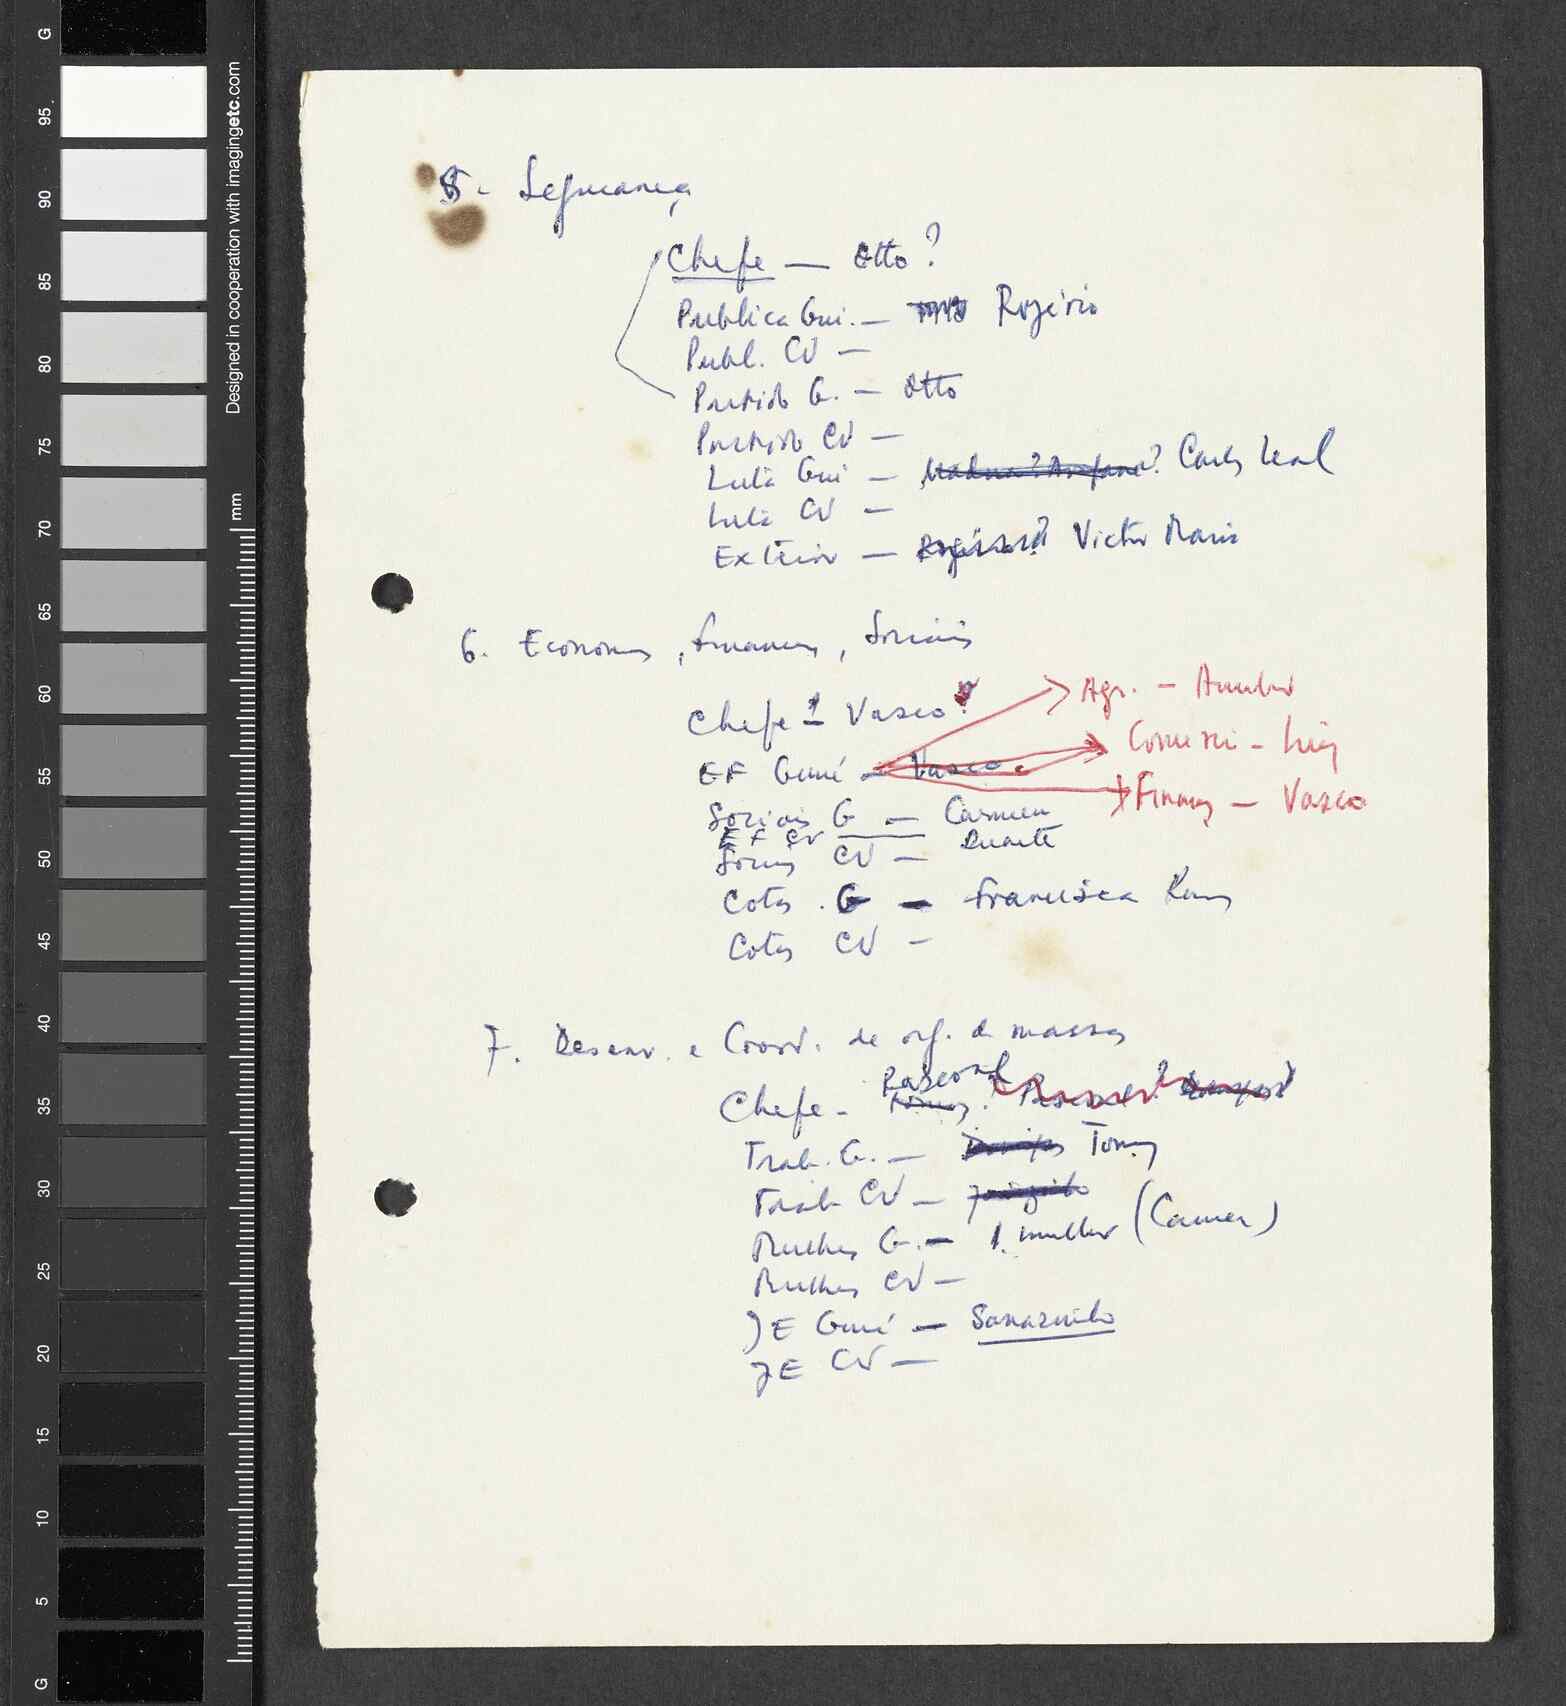 5. Segurança
Chefe — Otto?
Publica Gui. — Rogério
Publ. CV —
Partido G. — Otto
Partido CV —
Luta Gui — Carlos Leal
Luta CV —
Exterior — Victor Maria
6. Economia, Finanças, Sociais
Chefe — Vasco?
Agr. — 
EF Guiné — Vasco
Comerci — Luiz
Finanças — Vasco
Sociais G — Carmen
EF CV — Duarte
Sociais CV —
Cotas G — Francisca
Cotas CV —
7. Desenv. e Coord. de org. de massas
Pascoal
Chefe - Tomás? Pascoal?
Trab. G. — Tomás
Trab CV —
Mulheres G. — 1 mulher (Carmen)
Mulheres CV —
JE Guiné —
JE CV —
G
95
90
85
80
75
70
65
60
55
50
45
40
35
30
25
20
15
10
5
G
Designed in cooperation with imagingetc.com
mm